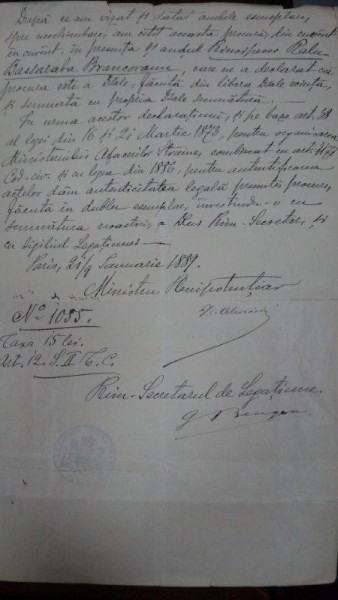 După ce am vizat și datat ambele exemplare,
spre neschimbare, am citit această procură, din cuvânt
în cuvânt, în presența
Bassaraba Brancovanu, care ne a declarat că
procura este a Dsale, făcută din libera Dsale voință,
și semnată cu propria Dsale semnătură.
Pe urma acestor declarațiuni, și pe baza art. 38
al legei din 16 și 21 Martie 1873, pentru organizarea
Ministerului Afacerilor Străine, combinat cu art. 1171
Cod. civ. și cu legea din 1886, pentru autentificarea
actelor dăm autenticitatea legală presentei procure,
făcută în dublu exemplar, investindu-o cu
semnătura noastră, a Dlui Prim-Secretar, și
cu Sigiliul Legațiunei
Paris, 21/9 Ianuarie 1889.
Ministru Plenipotențiar
No 1055.
Taxa 15 lei.
Art. 12. S. II T. C.
Prim-Secretarul de Legațiune